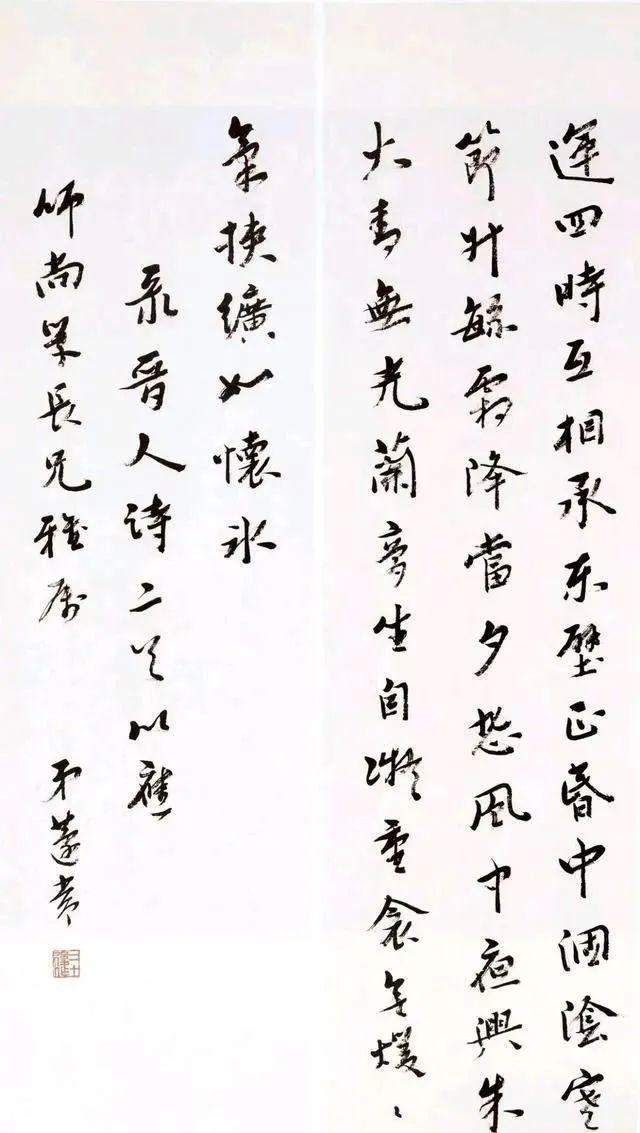 運四時互相承东壁正昏中涸陰寒
節升緐霜降當夕悲風中夜興朱
火青無光蘭膏坐自凝重衾無煖
氣挾纊如懷冰
录晋人诗二首以應
師尚學長兄雅屬 弟蘧常